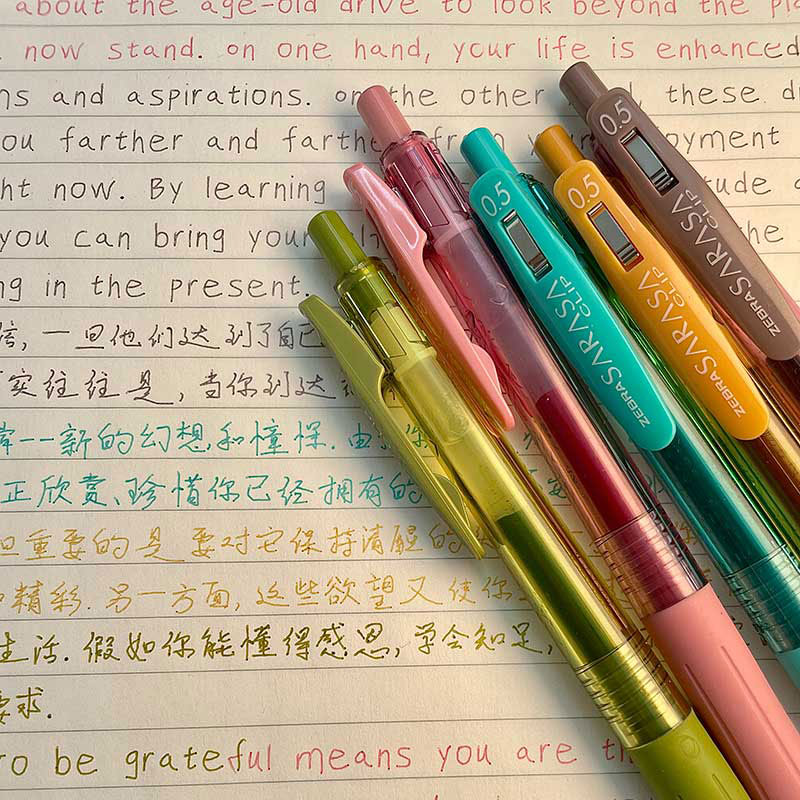 about the age-old drive to look beyond the
now stand. on one hand, your life is enhanced
and aspirations. on the other these
ou farther and farther from your
ht now. By learning
you can bring your the
ng in the present.
一旦他们达到了自己
实往往是, 当你到达
新的幻想和憧憬. 由
正欣赏、珍惜你已经拥有的
但重要的是要对它保持清醒的
精彩. 另一方面, 这些欲望又使你
生活. 假如你能懂得感恩, 学会知足,
要求.
to be grateful means you are
0.5
ZEBRA SARASA CLIP
0.5
ZEBRA SARASA CLIP
0.5
ZEBRA SARASA CLIP